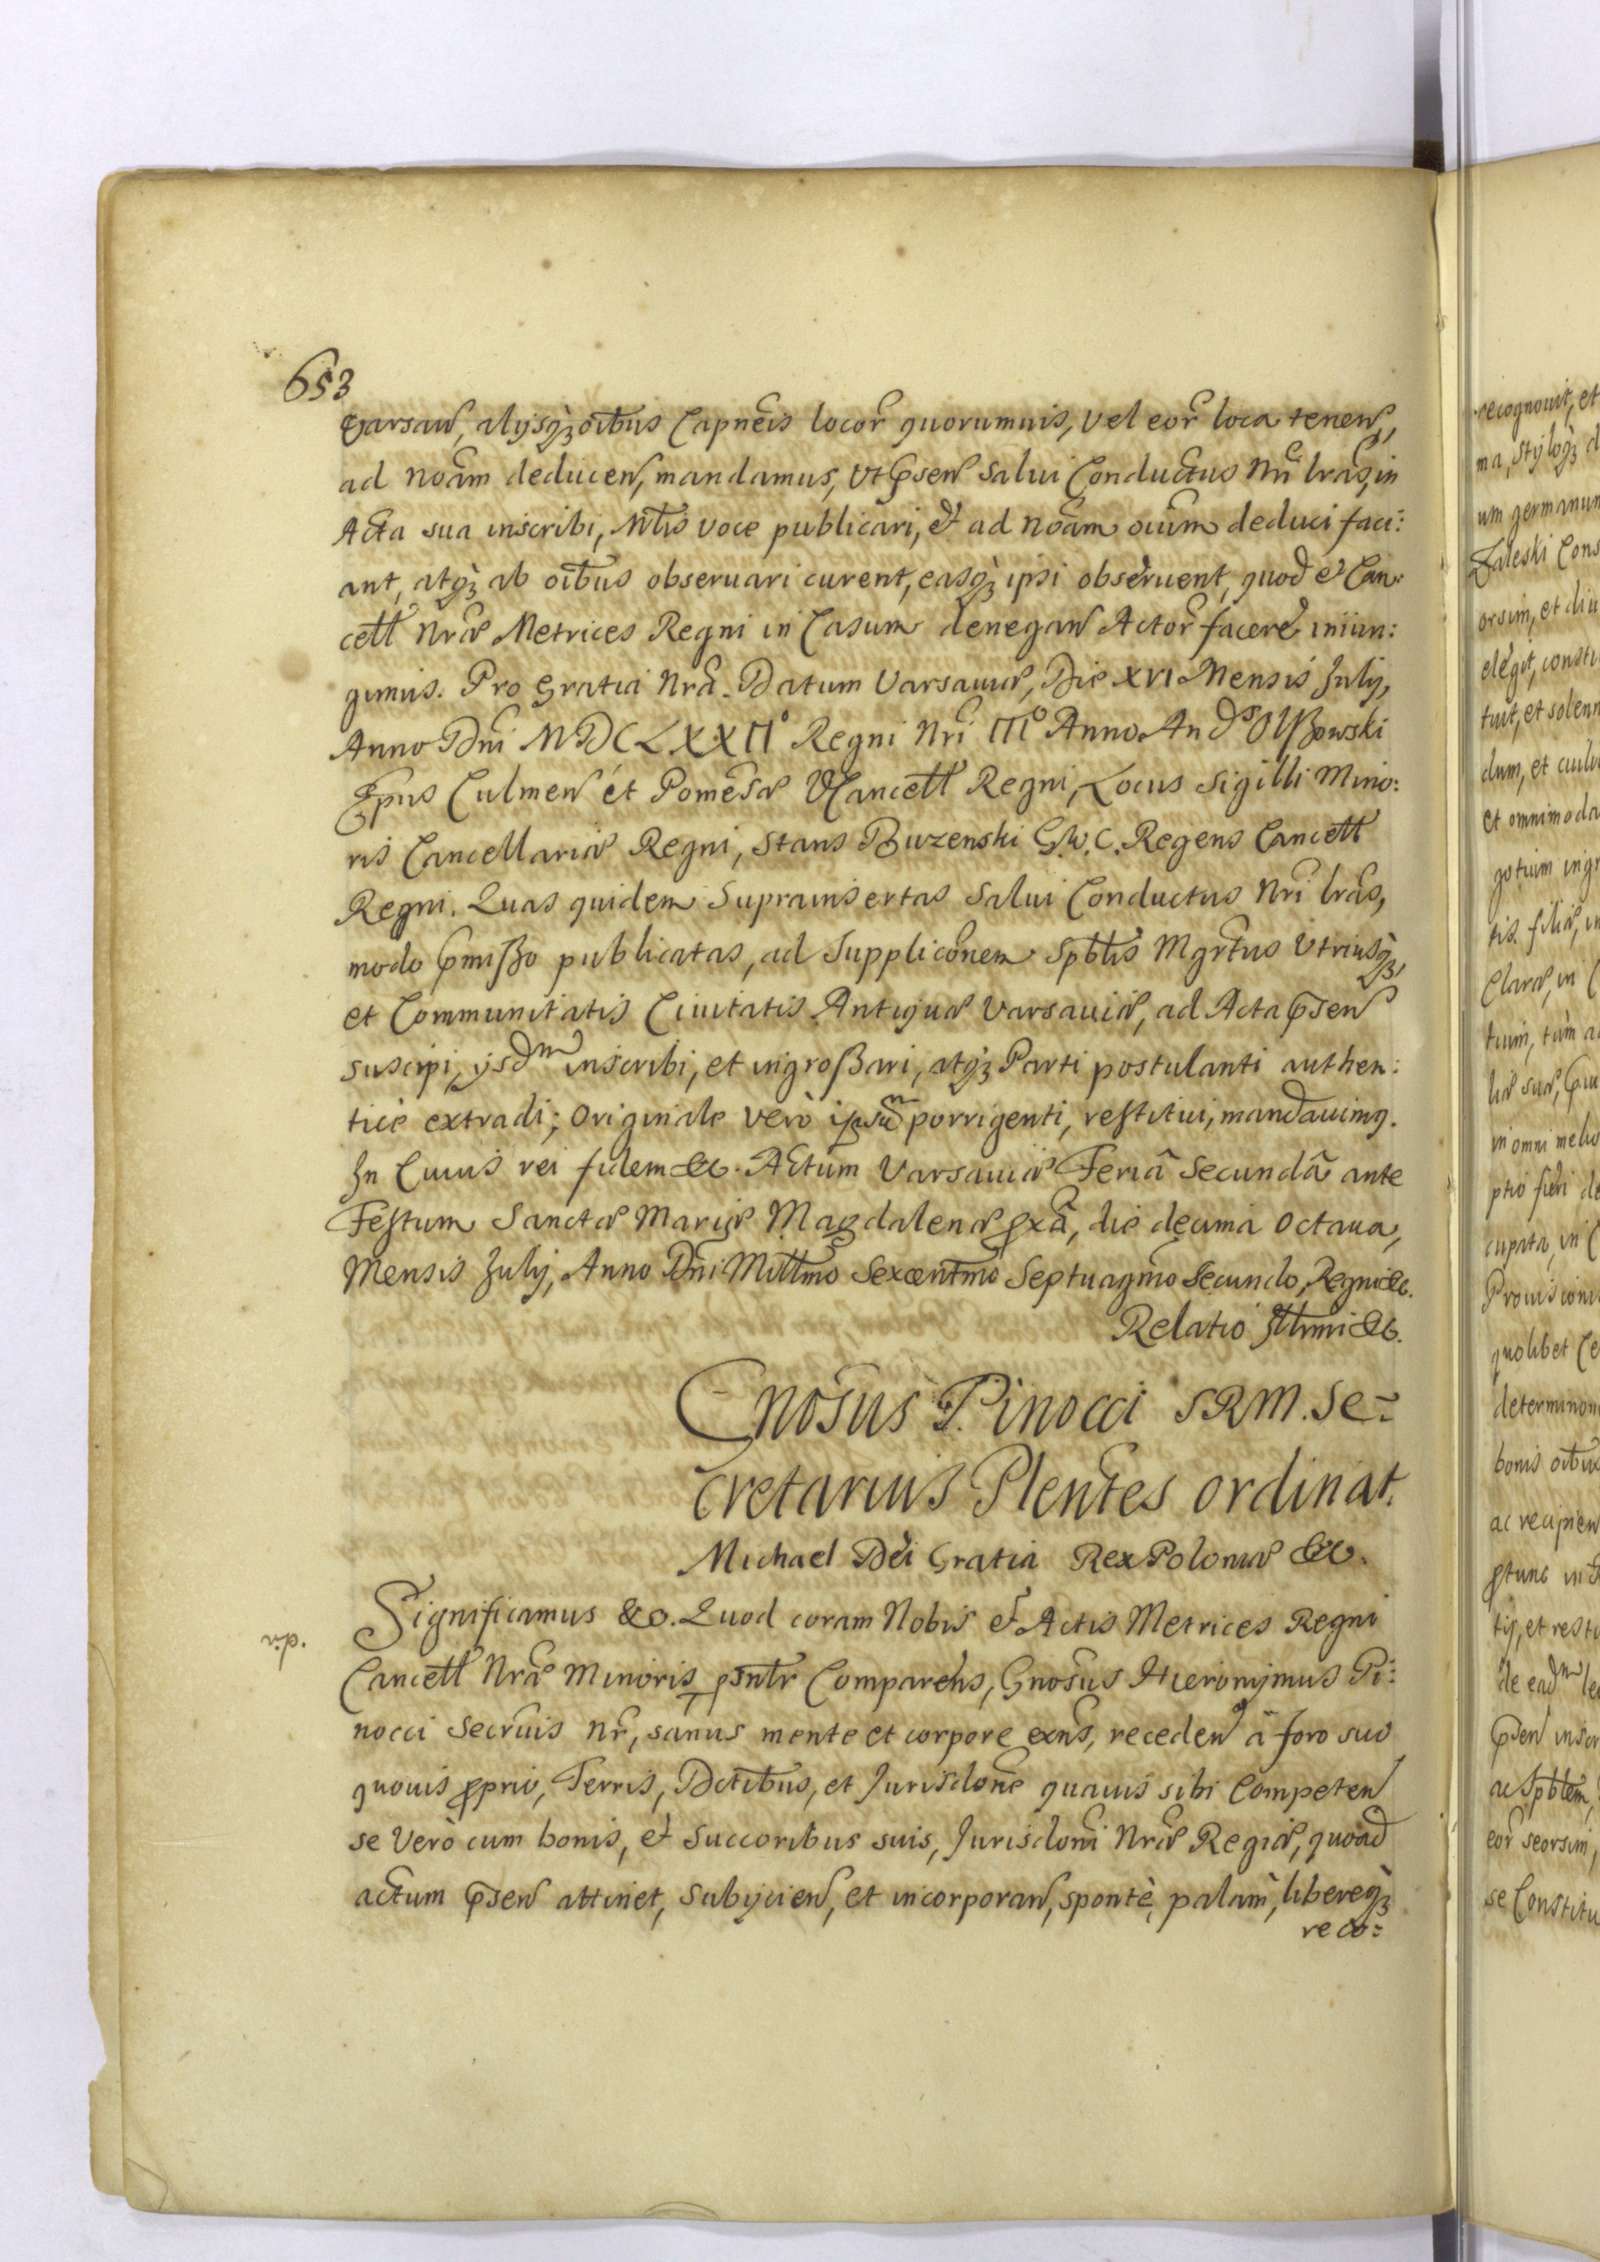 653
Varsavien, alijsq3 oibus Capneis locor quorumuis, vel eor loca tenen,
ad noam deducen, mandamus, vt psen salui Conductus Nri lras, in
Acta sua inscribi, Mtis voce publicari, et ad noam oium deduci faci:
ant, atq3 ab oibus obseruari curent, easq3 ipsi obseruent, quod et Can:
cell Nrae Metrices Regni in Casum denegan Actor facere iniun:
gimus. Pro Gratia Nra. Datum Varsauiae, Die XVI Mensis Julij,
Anno Dni MDCLXXIIo Regni Nri IIIo Anno Ands Olßowski
Epus Culmen et Pomesae VCancell Regni, Locus Sigilli Mino:
ris Cancellariae Regni, Stans Buzenski G.W.C. Regens Cancell
Regni. Quas quidem suprainsertas salui Conductus Nri lras,
modo pmißo publicatas, ad Supplicoem Spblis Mgrtus Vtriusq3,
et Communitatis Ciuitatis Antiquae Varsauiae, ad Acta psen
suscipi, ijsdm inscribi, et ingroßari, atq3 Parti postulanti authen:
tice extradi; Originale vero ipsum porrigenti, restitui, mandauimus.
In Cuius rei fidem &c. Actum Varsauiae Feria Secunda ante
Festum Sanctae Mariae Magdalenae pxa, die decima octaua,
Mensis Julij, Anno Dni Millmo Sexcentmo Septuagmo Secundo, Regni &c.
Relatio Illrmi &c.
Gnosus Pinocci SRM. Se-
cretarius Plentes ordinat.
Michael Dei Gratia Rex Poloniae &c.
Significamus &c. Quod coram Nobis et Actis Metrices Regni
Cancell Nrae Minoris psntr Comparens, Gnosus Hieronymus Pi:
nocci Secrius Nr, sanus mente et corpore exns, receden a foro suo
quouis pprio, Terris, Dctibus, et Jurisdone quauis sibi Competen
se vero cum bonis, et Succoribus suis, Jurisdoni Nrae Regiae, quoad
actum psen attinet, subijcien, et incorporan, sponte, palam, libereq3
reco:
recognouit, et
ma, stijloq3 d
um germanum
Zaleski Cons
orsim, et diu
elegit, constu
tuit, et solenn
dum, et cuilu
et omnimoda
gotium ingr
tis filiae, in
Clarae, in C
tuim, tum ac
liae suae,
in omni melio
ptio fieri de
cupata, in C
Prouision
quolibet Ce
determinon
bonis oibus
ac recipien
ptunc in
tij, et restu
de eadm le
psen inscr
ac Spblem,
eor seorsim,
se Constitu